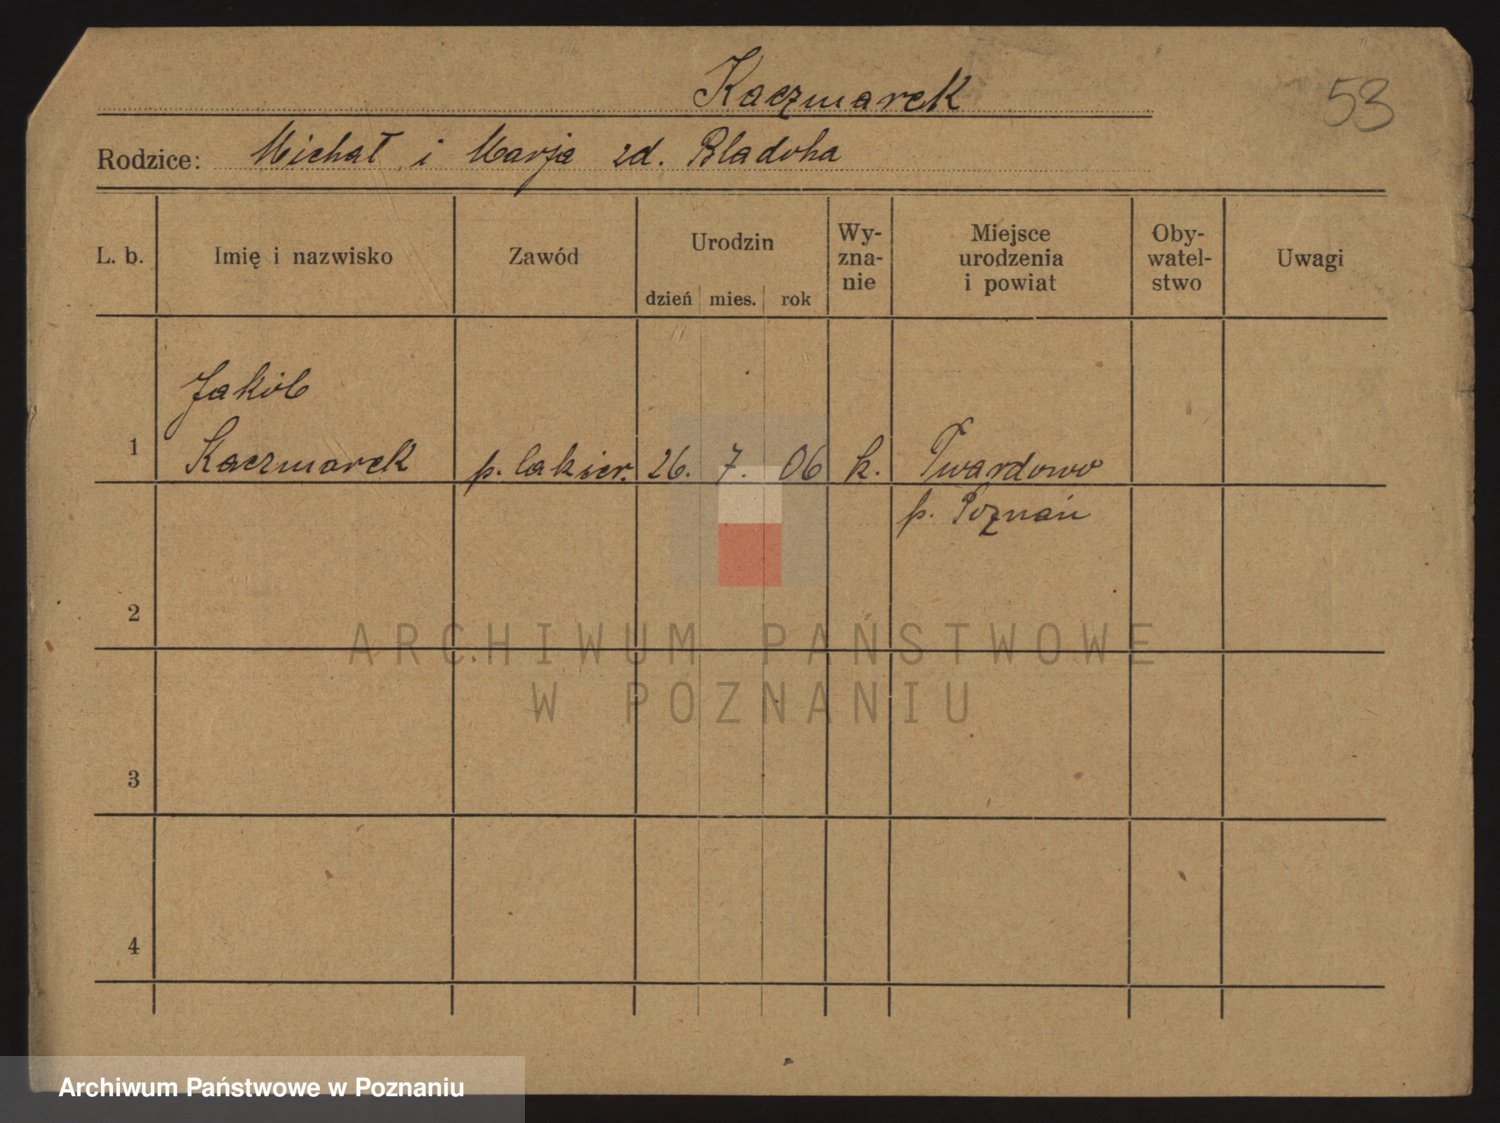 Kaczmarek
53
Rodzice: Michał i Marja zd. Bladoha
L. b.
Imię i nazwisko
Zawód
Urodzin
dzień mies. rok
Wy-
zna-
nie
Miejsce
urodzenia
i powiat
Oby-
watel-
stwo
Uwagi
Jakób
1 Kaczmarek p. lakier. 26. 7. 06 k. Twardowo
p. Poznań
2
3
4
ARCHIWUM PAŃSTWOWE
W POZNANIU
Archiwum Państwowe w Poznaniu